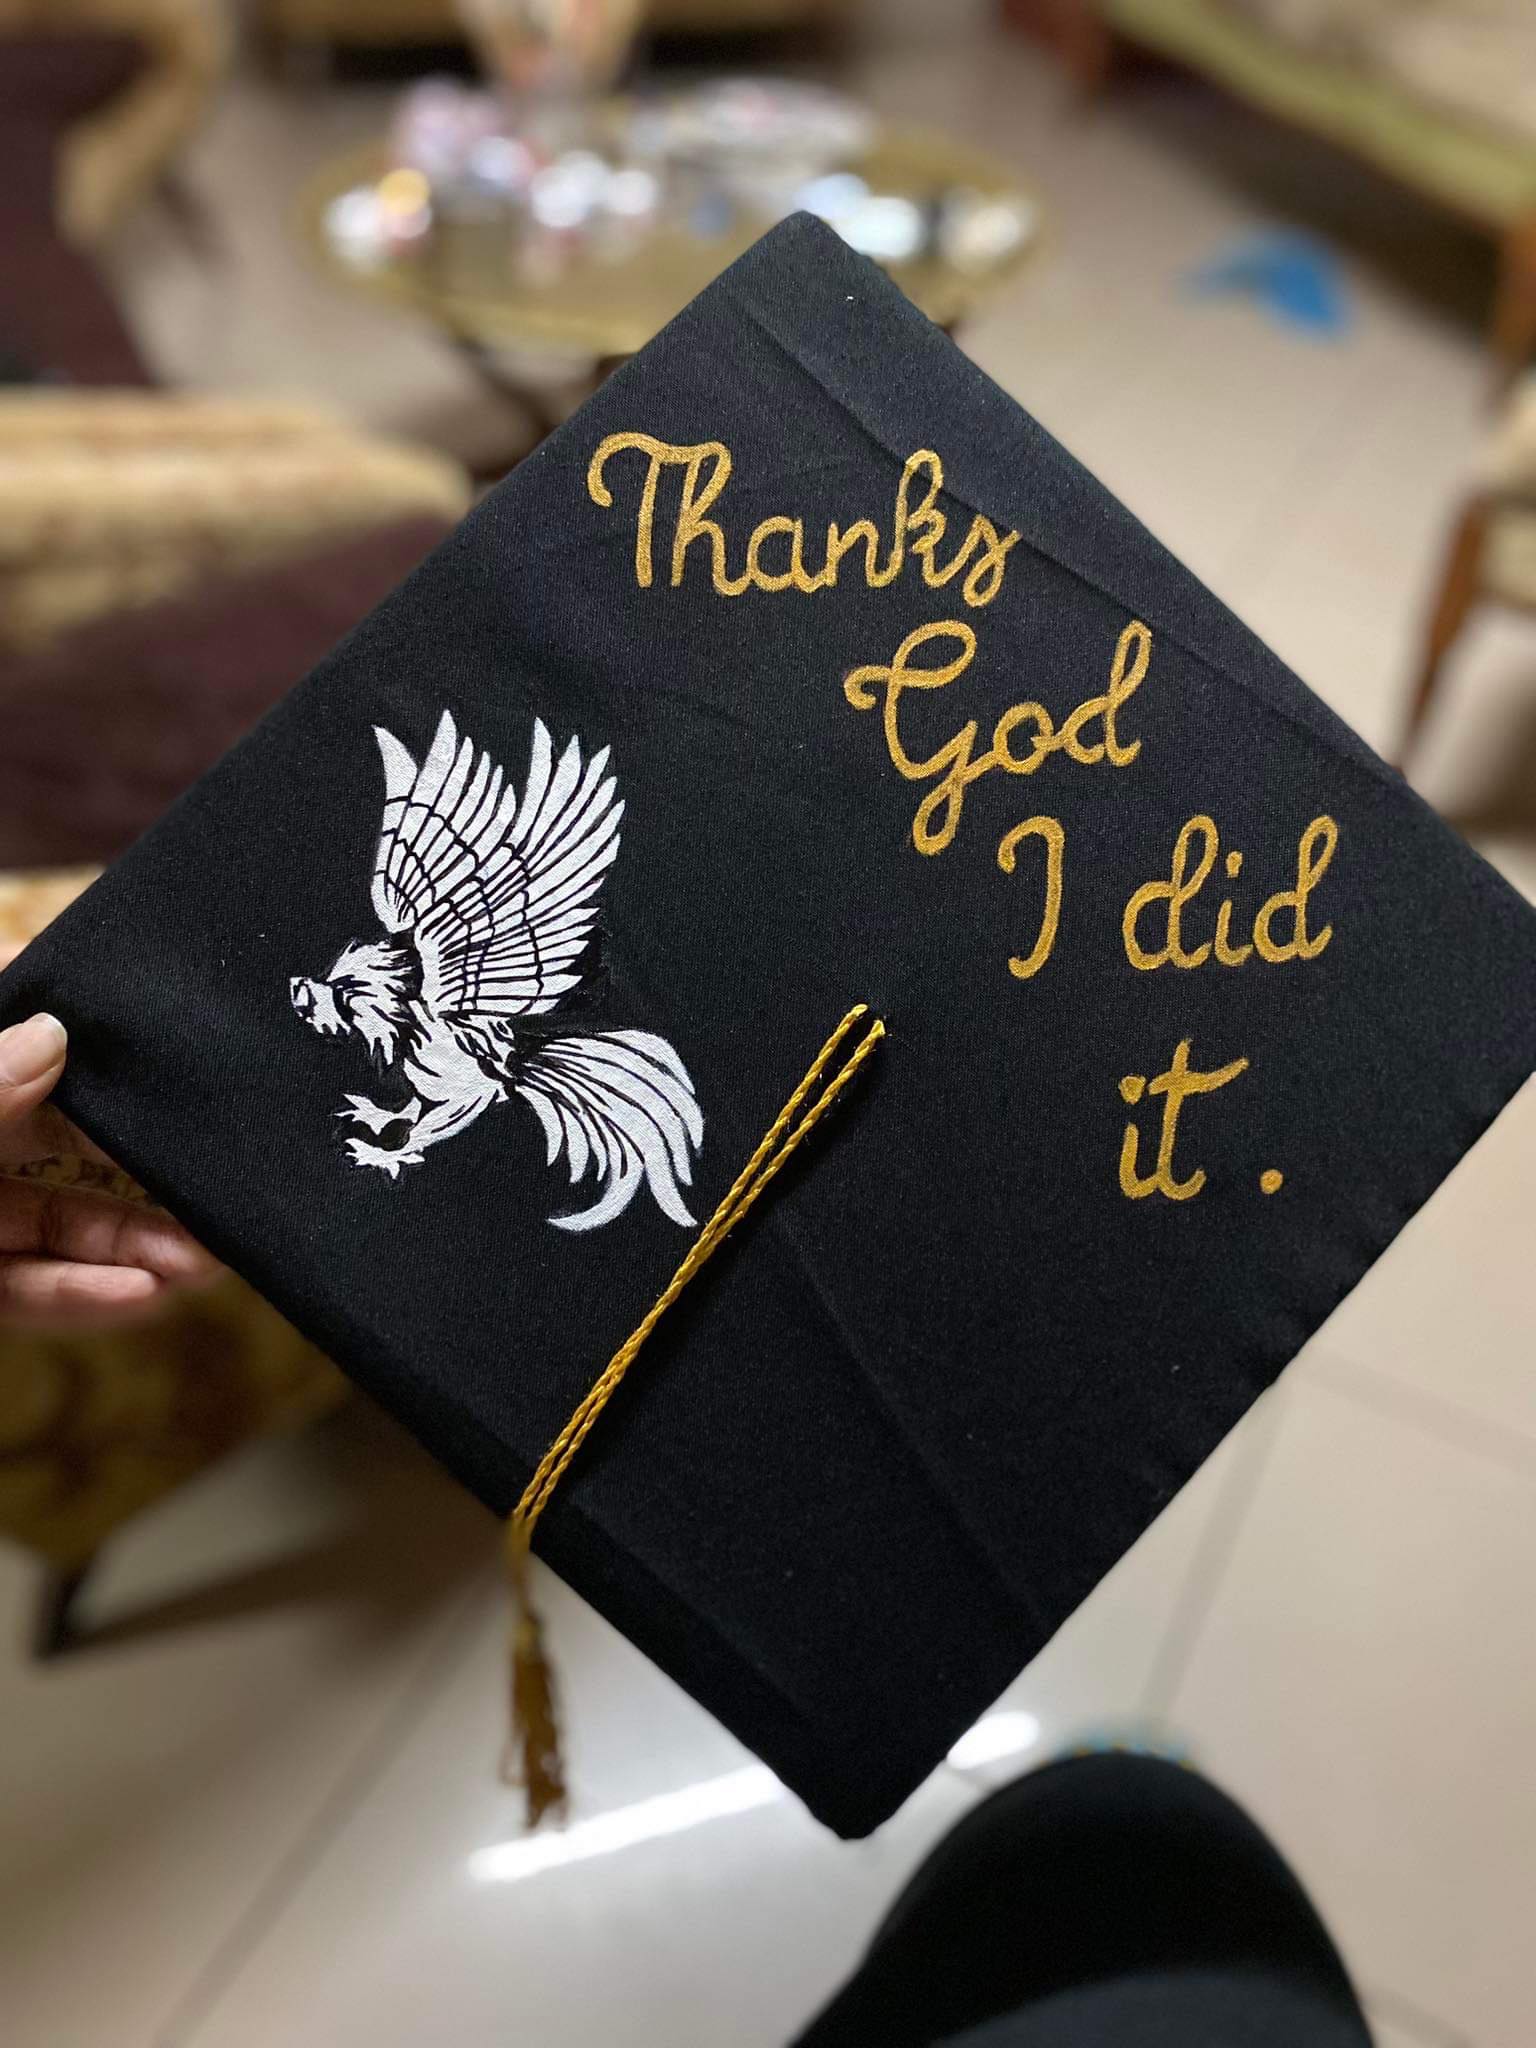 Thanks
God
I did
it.